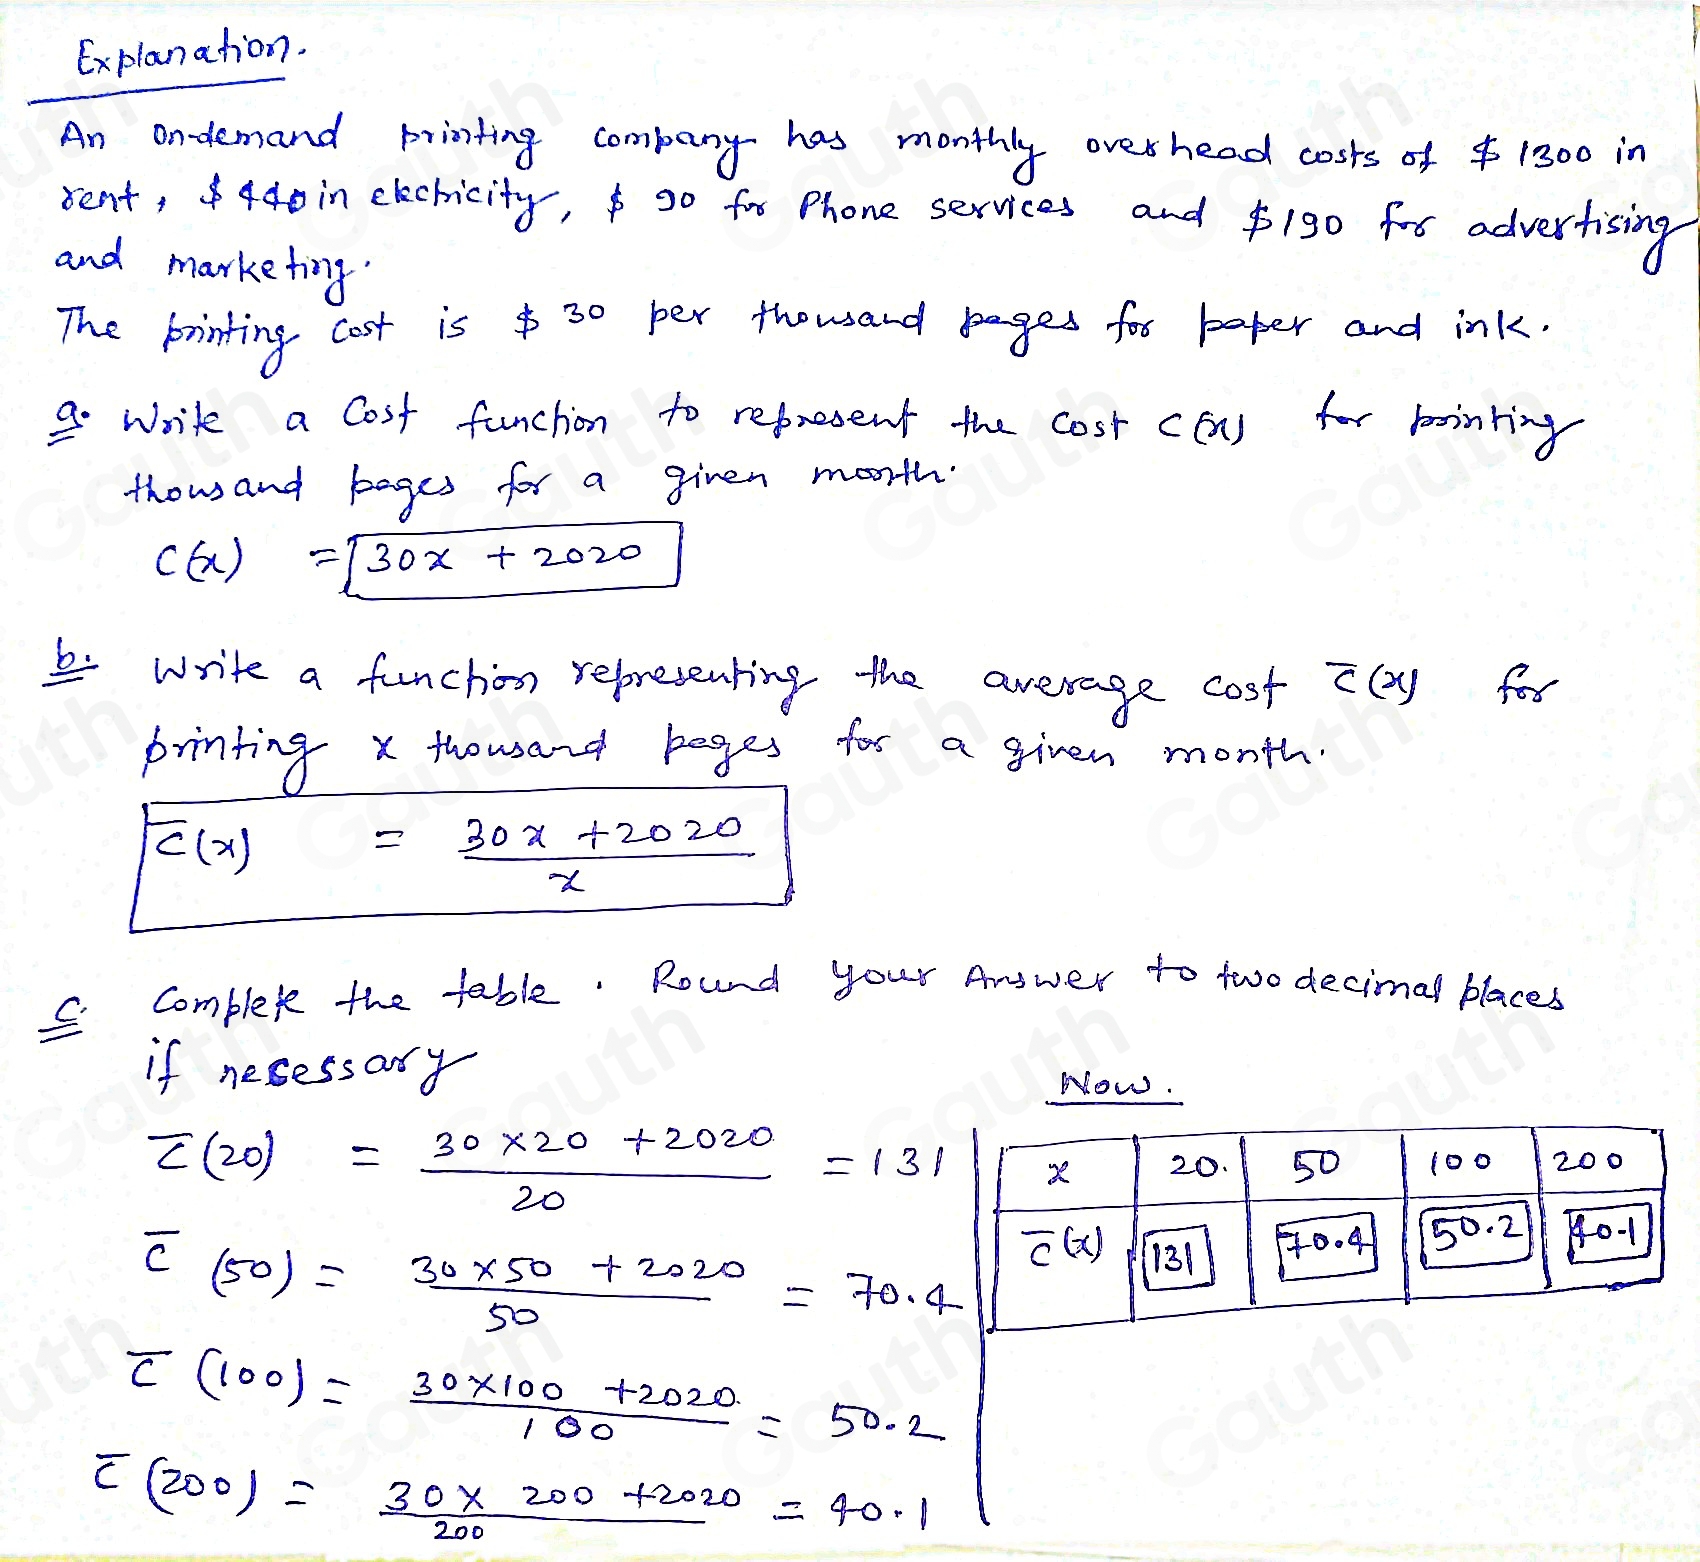 Explanation.
An on-demand printing company has monthly overhead costs of $1300 in
rent, $440 in electricity, $90 for Phone services and $190 for advertising
and marketing.
The printing cost is $30 per thousand pages for paper and ink.
a. Write a Cost function to represent the cost C(x) for printing
thousand pages for a given month.
C(x) = 30x + 2020
b. Write a function representing the average cost C̅(x) for
printing x thousand pages for a given month.
C̅(x) = (30x + 2020)/x
c. Complete the table. Round your Answer to two decimal places
if necessary
C̅(20) = (30×20 + 2020)/20 = 131
C̅(50) = (30×50 + 2020)/50 = 70.4
C̅(100) = (30×100 + 2020)/100 = 50.2
C̅(200) = (30× 200 + 2020)/200 = 40.1
Now.
x 20. 50 100 200
C̅(x) 131 70.4 50.2 40.1
Gauth